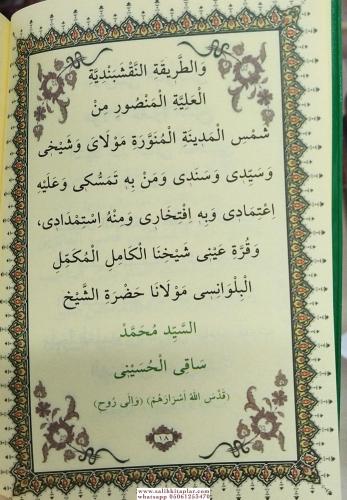 وَالطَّرِيقَةِ النَّقْشَبَنْدِيَّةِ
الْعَلِيَّةِ الْمَنْصُورِ مِنْ
شَمْسِ الْمَدِينَةِ الْمُنَوَّرَةِ مَوْلَاىَ وَشَيْخِى
وَسَيِّدِى وَسَنَدِى وَمَنْ بِهِ تَمَسُّكِى وَعَلَيْهِ
اِعْتِمَادِى وَبِهِ اِفْتِخَارِى وَمِنْهُ اِسْتِمْدَادِى،
وَقُرَّةِ عَيْنِى شَيْخِنَا الْكَامِلِ الْمُكَمِّلِ
الْبِلْوَانِسِى مَوْلَانَا حَضْرَةِ الشَّيْخِ
السَّيِّدِ مُحَمَّدْ
سَاقِى الْحُسَيْنِى
(قَدَّسَ اللّٰهُ اَسْرَارَهُمْ) (وَاِلٰى رُوحِ)
١٨
www.salihkitaplar.com
whatsapp 05061255470